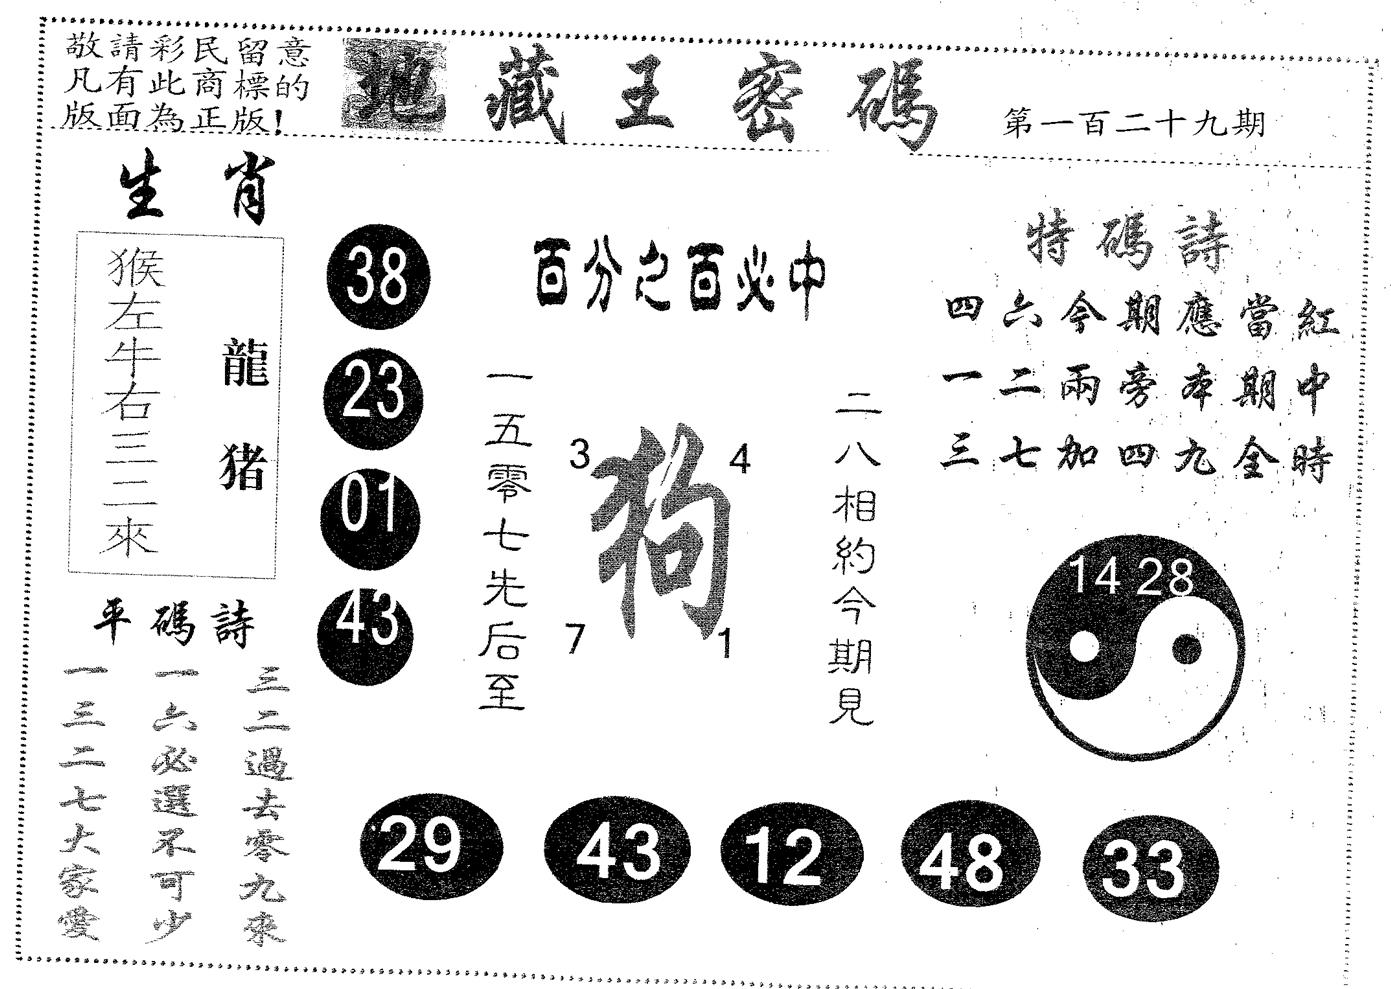 敬請彩民留意
凡有此商標的
版面為正版!
地藏王密碼
第一百二十九期
生肖
猴左牛右三二來
龍猪
38
23
01
43
百分之百必中
一五零七先后至
3
4
狗
7
1
二八相約今期見
特碼詩
四六今期應當紅
一二兩旁本期中
三七加四九全時
14 28
平碼詩
三二過去零九來
一六必選不可少
一三二七大家愛
29
43
12
48
33